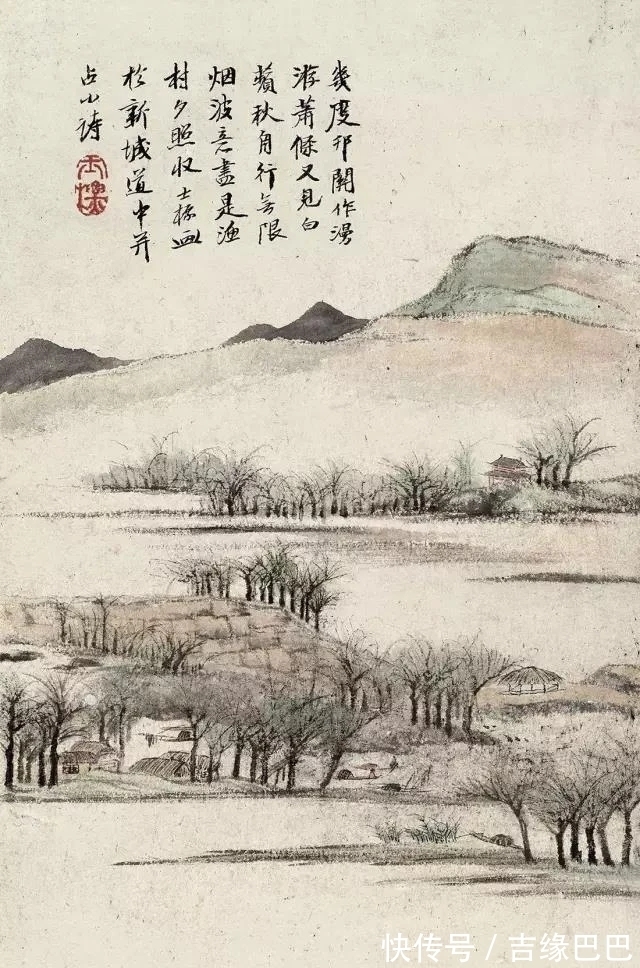 幾度邗關作漫
游蕭條又見白
蘋秋舟行無限
烟波意盡是漁
村夕照収士標画
於新城道中并
占小詩
士標
快传号 / 吉缘巴巴